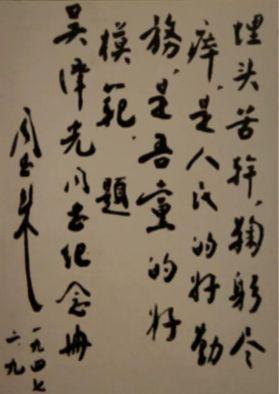 埋头苦幹，鞠躬尽
瘁，是人民的好勤
務，是吾党的好
模範。題
吴津先同志纪念册
周恩来
一九四七
六、九